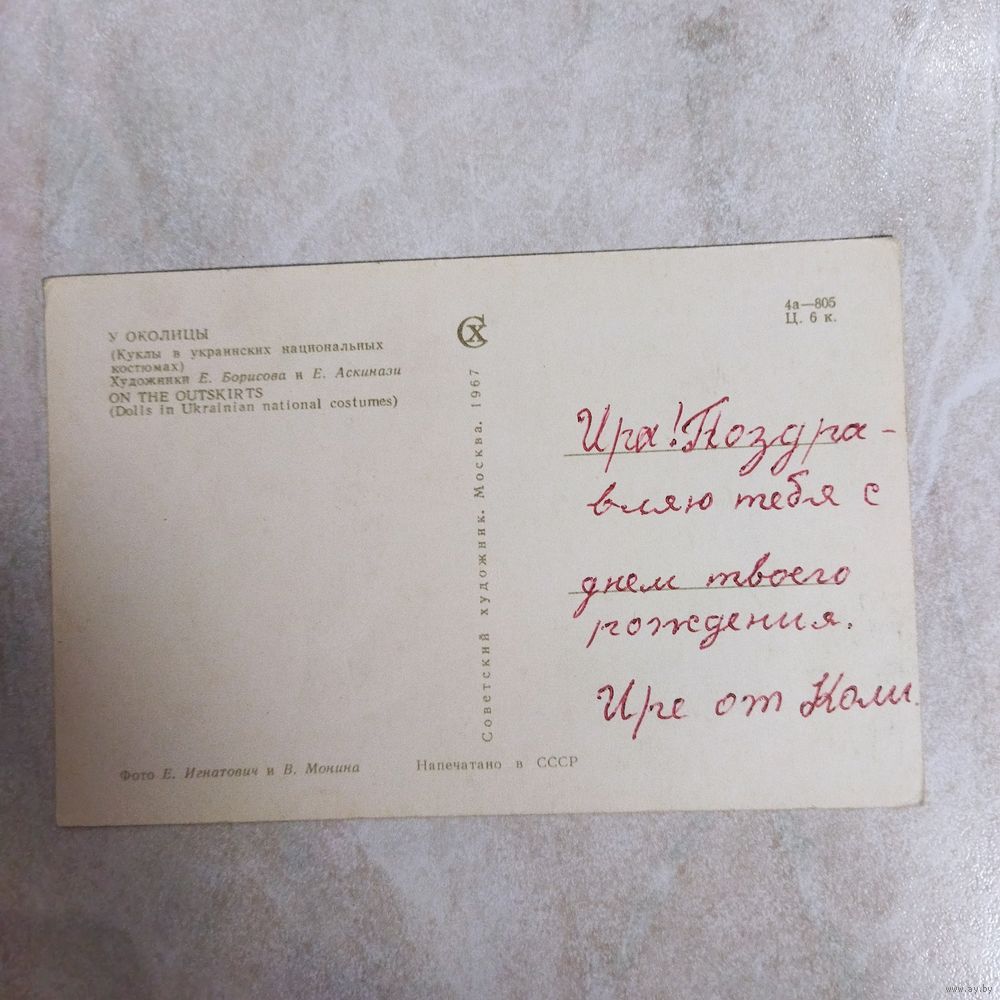 У ОКОЛИЦЫ
(Куклы в украинских национальных
костюмах)
Художники Е. Борисова и Е. Аскинази
ON THE OUTSKIRTS
(Dolls in Ukrainian national costumes)
Фото Е. Игнатович и В. Монина
Советский художник. Москва. 1967
Напечатано в СССР
СХ
4а—805
Ц. 6 к.
Ира! Поздра-
вляю тебя с
днем твоего
рождения.
Ире от Коли.
www.ay.by